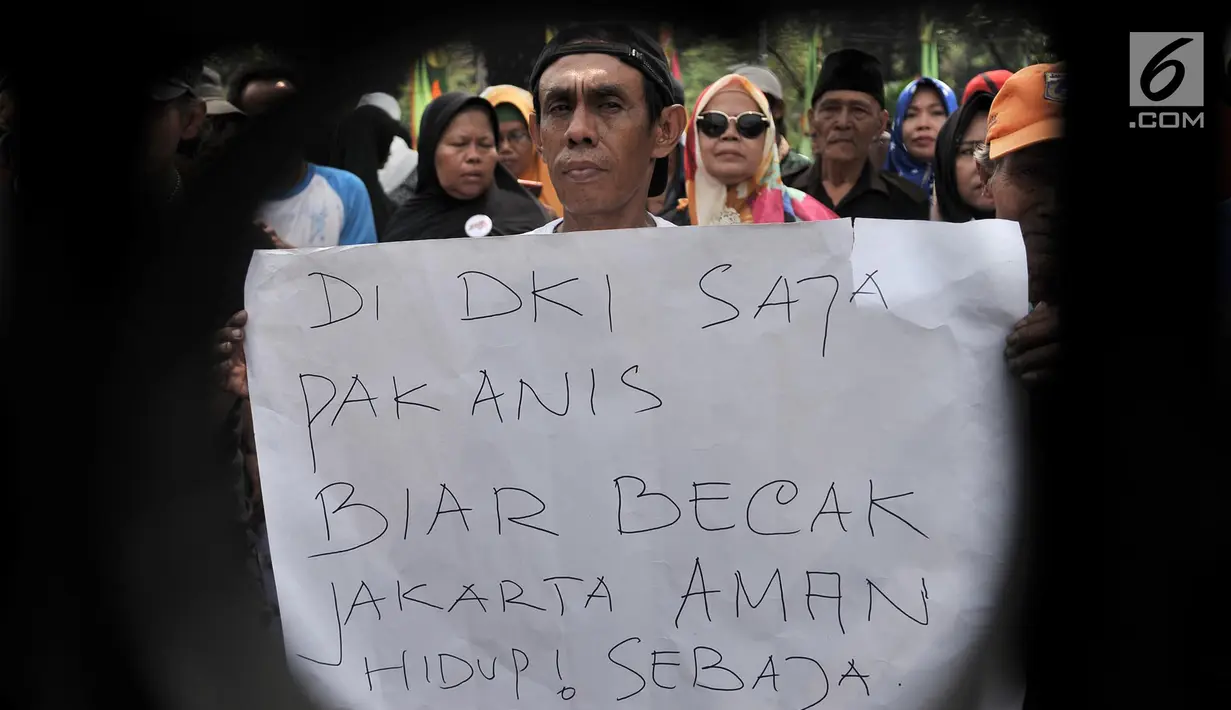 6
.COM
DI DKI SAJA
PAK ANIS
BIAR BECAK
JAKARTA AMAN
HIDUP! SEBAJA.